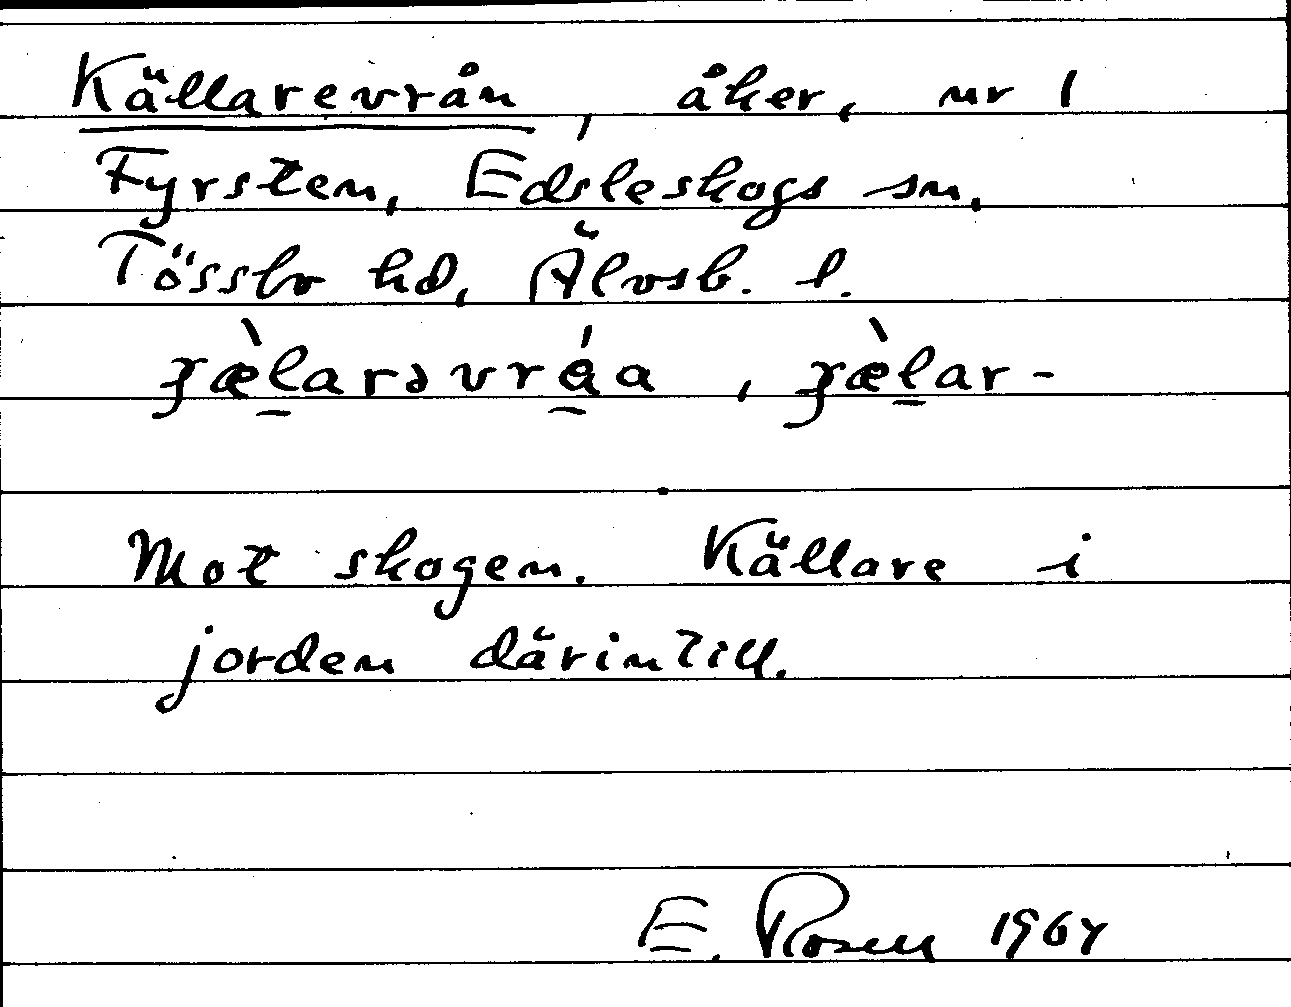 Källarevrån, åker, nr 1
Fyrsten, Edsleskogs sn,
Tössbo hd, Älvsb. l.
Mot skogen. Källare i
jorden därintill.
E. Rosell 1964